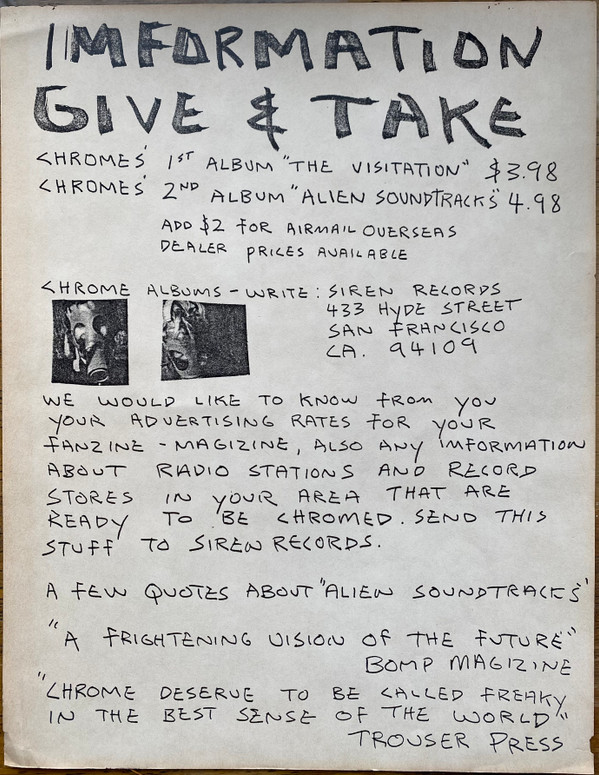 IMFORMATION
GIVE & TAKE
CHROMES' 1ST ALBUM "THE VISITATION" $3.98
CHROMES' 2ND ALBUM "ALIEN SOUNDTRACKS" 4.98
ADD $2 FOR AIRMAIL OVERSEAS
DEALER PRICES AVAILABLE
CHROME ALBUMS - WRITE: SIREN RECORDS
433 HYDE STREET
SAN FRANCISCO
CA. 94109
WE WOULD LIKE TO KNOW FROM YOU
YOUR ADVERTISING RATES FOR YOUR
FANZINE - MAGIZINE, ALSO ANY IMFORMATION
ABOUT RADIO STATIONS AND RECORD
STORES IN YOUR AREA THAT ARE
READY TO BE CHROMED. SEND THIS
STUFF TO SIREN RECORDS.
A FEW QUOTES ABOUT "ALIEN SOUNDTRACKS"
"A FRIGHTENING VISION OF THE FUTURE"
BOMP MAGIZINE
"CHROME DESERVE TO BE CALLED FREAKY
IN THE BEST SENSE OF THE WORLD"
TROUSER PRESS